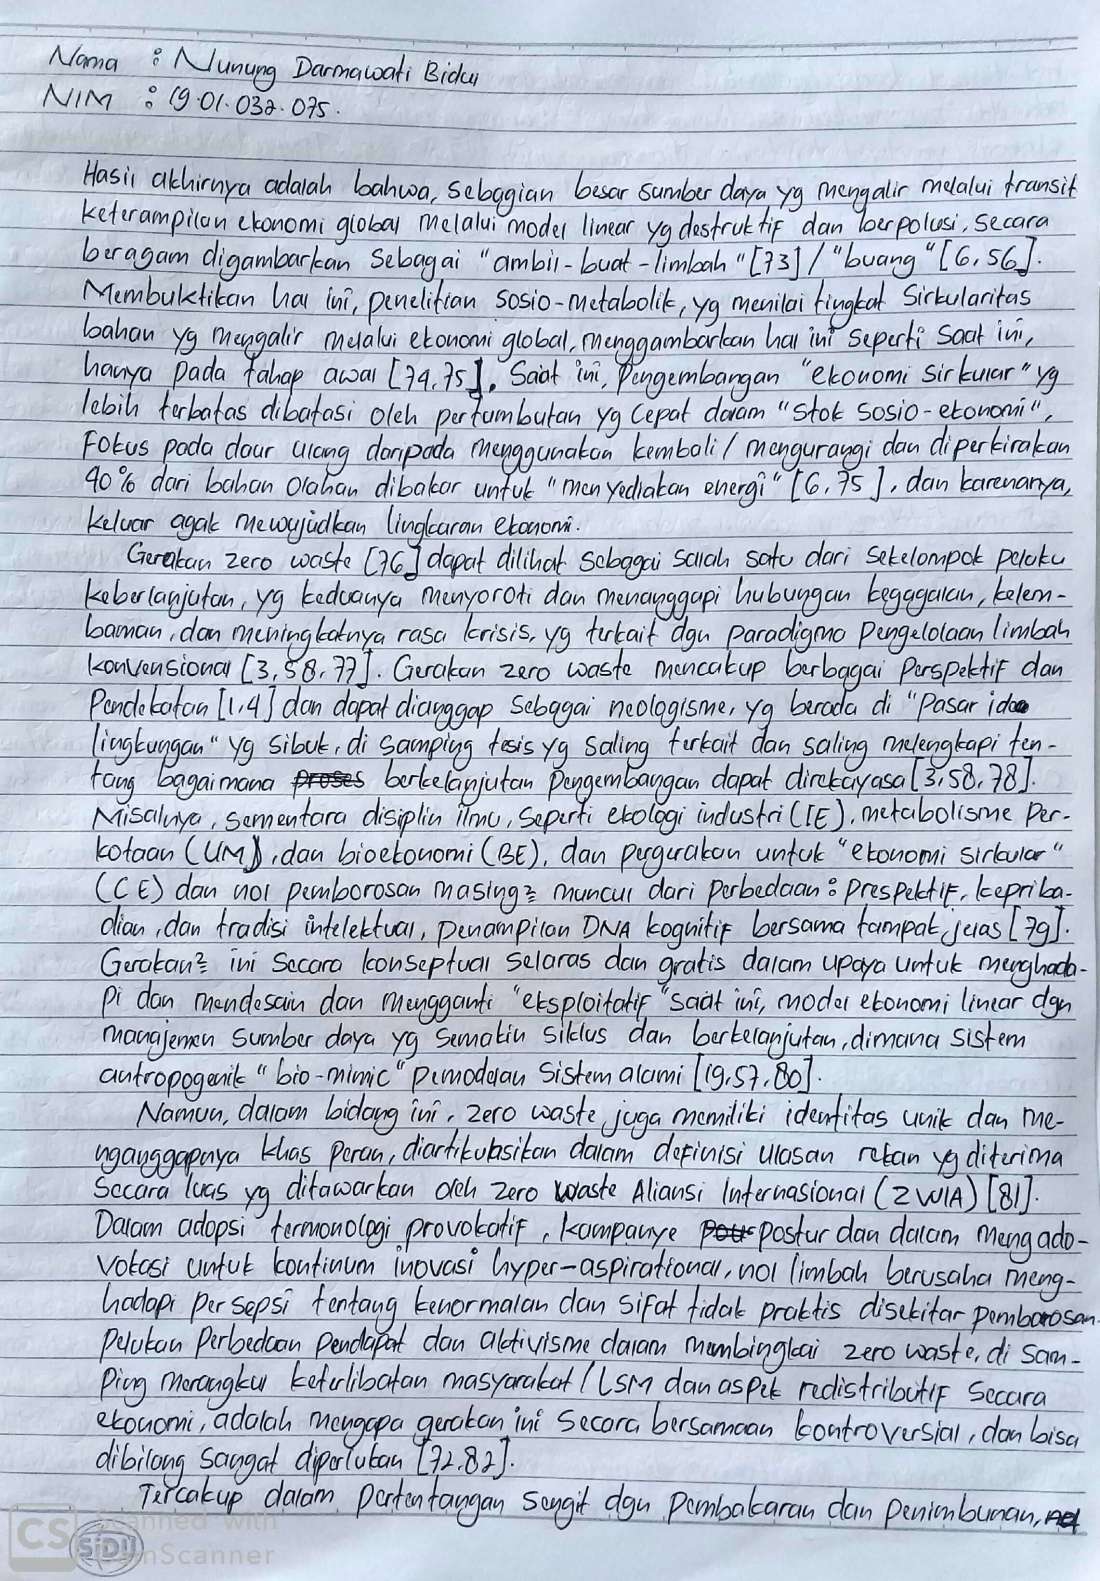 Nama : Nunung Darmawati Bidu
NIM : 19.01.032.075.
Hasil akhirnya adalah bahwa, sebagian besar sumber daya yg mengalir melalui transit
keterampilan ekonomi global melalui model linear yg destruktif dan berpolusi, secara
beragam digambarkan sebagai "ambil-buat-limbah" [73] / "buang" [6,56].
Membuktikan hal ini, penelitian sosio-metabolik, yg menilai tingkat sirkularitas
bahan yg mengalir melalui ekonomi global, menggambarkan hal ini seperti saat ini,
hanya pada tahap awal [74,75]. Saat ini, pengembangan "ekonomi sirkular" yg
lebih terbatas dibatasi oleh pertumbutan yg cepat dalam "stok sosio-ekonomi",
Fokus pada daur ulang daripada menggunakan kembali/mengurangi dan diperkirakan
40% dari bahan olahan dibakar untuk "menyediakan energi" [6,75], dan karenanya,
keluar agak mewujudkan lingkaran ekonomi.
Gerakan zero waste [76] dapat dilihat sebagai salah satu dari sekelompok pelaku
keberlanjutan, yg keduanya menyoroti dan menanggapi hubungan kegagalan, kelem-
baman, dan meningkatnya rasa krisis, yg terkait dgn paradigma pengelolaan limbah
konvensional [3,58,77]. Gerakan zero waste mencakup berbagai perspektif dan
Pendekatan [1,4] dan dapat dianggap sebagai neologisme, yg berada di "Pasar ide
lingkungan" yg sibuk, di samping tesis yg saling terkait dan saling melengkapi ten-
tang bagaimana proses berkelanjutan pengembangan dapat direkayasa [3,58,78].
Misalnya, sementara disiplin ilmu, seperti ekologi industri (IE), metabolisme per-
kotaan (UM), dan bioekonomi (BE), dan pergerakan untuk "ekonomi sirkular"
(CE) dan nol pemborosan masing2 muncul dari perbedaan : prespektif, kepriba-
dian, dan tradisi intelektual, penampilan DNA kognitif bersama tampak jelas [79].
Gerakan2 ini secara konseptual selaras dan gratis dalam upaya untuk menghada-
pi dan mendesain dan mengganti "eksploitatif" saat ini, model ekonomi linear dgn
manajemen sumber daya yg semakin siklus dan berkelanjutan, dimana sistem
antropogenik "bio-mimic" pemodelan sistem alami [19,57,80].
Namun, dalam bidang ini, zero waste juga memiliki identitas unik dan me-
nganggapnya khas peran, diartikulasikan dalam definisi ulasan rekan yg diterima
secara luas yg ditawarkan oleh Zero Waste Aliansi Internasional (ZWIA) [81].
Dalam adopsi termonologi provokatif, kampanye postur dan dalam mengado-
vokasi untuk kontinum inovasi hyper-aspirational, nol limbah berusaha meng-
hadapi persepsi tentang kenormalan dan sifat tidak praktis disekitar pemborosan.
Pelukan perbedaan pendapat dan aktivisme dalam membingkai zero waste, di sam-
ping merangkul keterlibatan masyarakat/LSM dan aspek redistributif secara
ekonomi, adalah mengapa gerakan ini secara bersamaan kontroversial, dan bisa
dibilang sangat diperlukan [72,82].
Tercakup dalam pertentangan sengit dgn pembakaran dan penimbunan,
CS Scanned with
CamScanner
SiDU